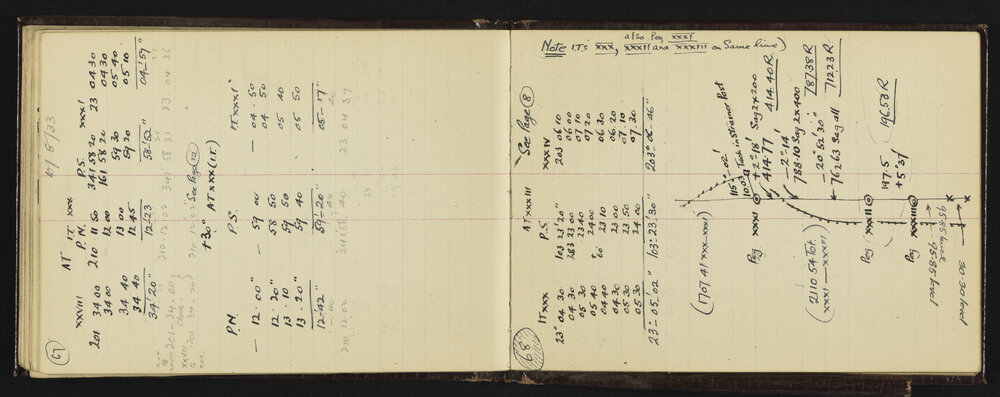 67
6/8/33
AT IT XXX
XXVIII P.N. P.S. XXXI
201 34 00 210 11 50 341 58 20 23 04 30
34 00 12 00 161 58 20 04 30
34 40 13 00 59 30 05 40
34 40 12 45 59 20 05 10
34' 20" 12' 23 58' 52" 04' 57"
See Page 12
+30" AT XXX (I.T.)
P.N. P.S. IT XXXI
— 12 - 00" — 59 00 — 04 - 50
12 - 20" 58 50 04 50
13 - 10 59 50 05 40
13 - 20" 59 40 05 50
12 - 42" 59 - 20" 05 - 17"
210 12.02 341 58 40 23 04 37
68
Note IT's XXX, also Peg XXXI
XXXII and XXXIII on same line)
See Page 8
AT XXXIII
IT XXX P.S. XXXIV
23° 04 30 103 23' 20" 203 06 10
04 30 283 23 00 06 00
05 30 23 40 07 10
05 40 24 00 07 20
04 40 23 10 06 30
04 30 23 00 06 20
05 30 23 50 07 10
05 30 24 00 07 30
23° - 05' 02" 103° 23' 30" 203° - 06 - 46"
(1707 41 XXX — XXXI)
Peg XXXI
115° 02'
100.3 Tack in Strainer Post
+ 2° 18' Sag 2 x 200
414.77 414.40 R
— 2° 14'
788.10 Sag 2 x 400 787.38 R
— 20° 52' 30"
762.63 Sag all 712.23 R
(2110 54 Tot.
XXXI — XXXIII)
Peg XXXII
197.5 196.58 R
+ 5° 31'
Peg XXXIII
95.85 level
95.85 level
30.30 level